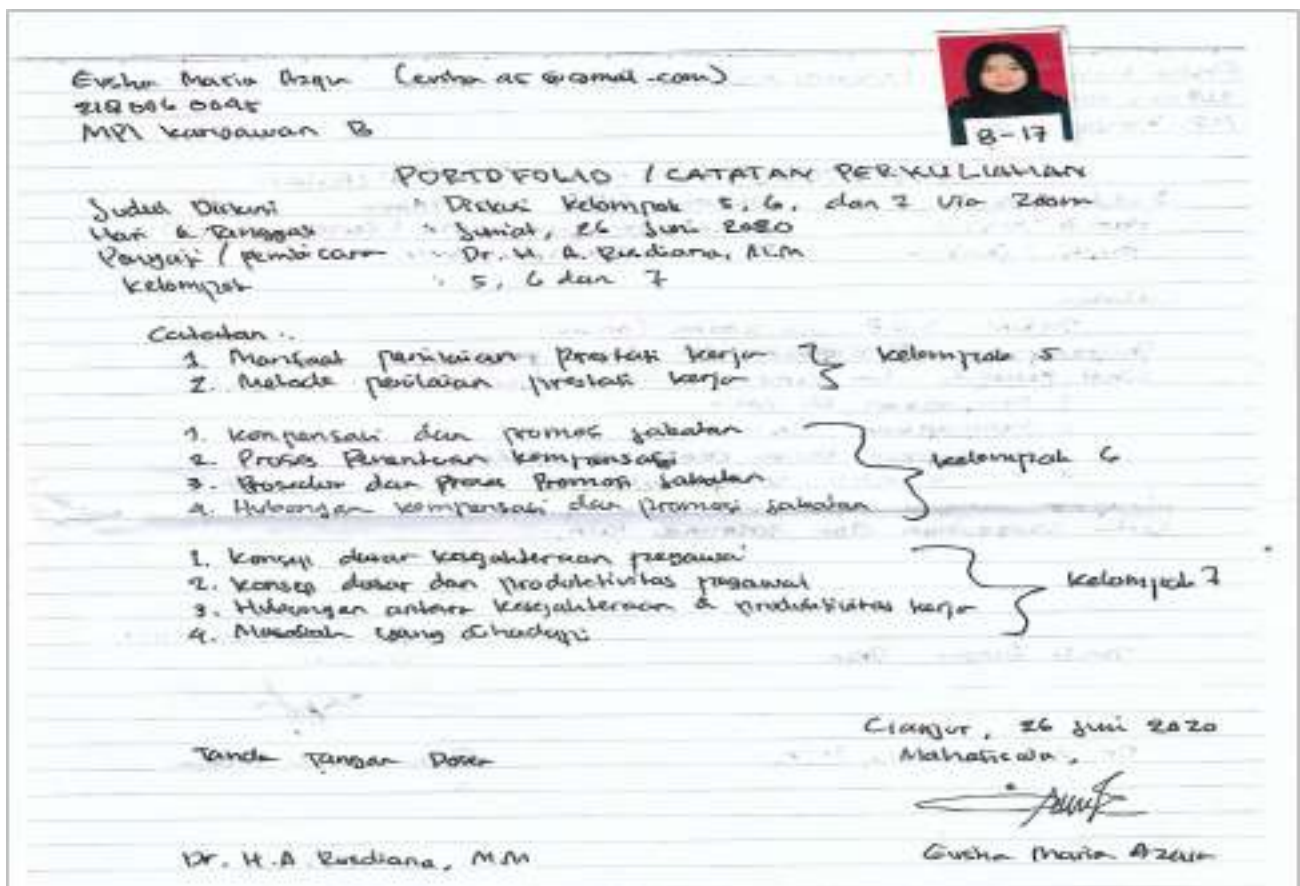 Evsha Maria Azqu
218 006 0045
MPI Karyawan B
B-17
PORTOFOLIO / CATATAN PERKULIAHAN
Judul Diskusi : Diskusi Kelompok 5, 6, dan 7 Via Zoom
Hari & Tanggal : Jum'at, 26 Juni 2020
Pengaji / pembicara Dr. H. A. Rusdiana, M.M
Kelompok : 5, 6 dan 7
Catatan :
1. Manfaat penilaian prestasi kerja
2. Metode penilaian prestasi kerja
Kelompok 5
1. Kompensasi dan promosi jabatan
2. Proses Penentuan kompensasi
3. Prosedur dan proses Promosi jabatan
4. Hubungan kompensasi dan promosi jabatan
kelompok 6
1. Konsep dasar kesejahteraan pegawai
2. Konsep dasar dan produktivitas pegawai
3. Hubungan antara kesejahteraan & produktivitas kerja
4. Masalah yang dihadapi
Kelompok 7
Cianjur, 26 Juni 2020
Tanda Tangan Dosen
Mahasiswa,
Dr. H. A Rusdiana, M.M
Evsha Maria